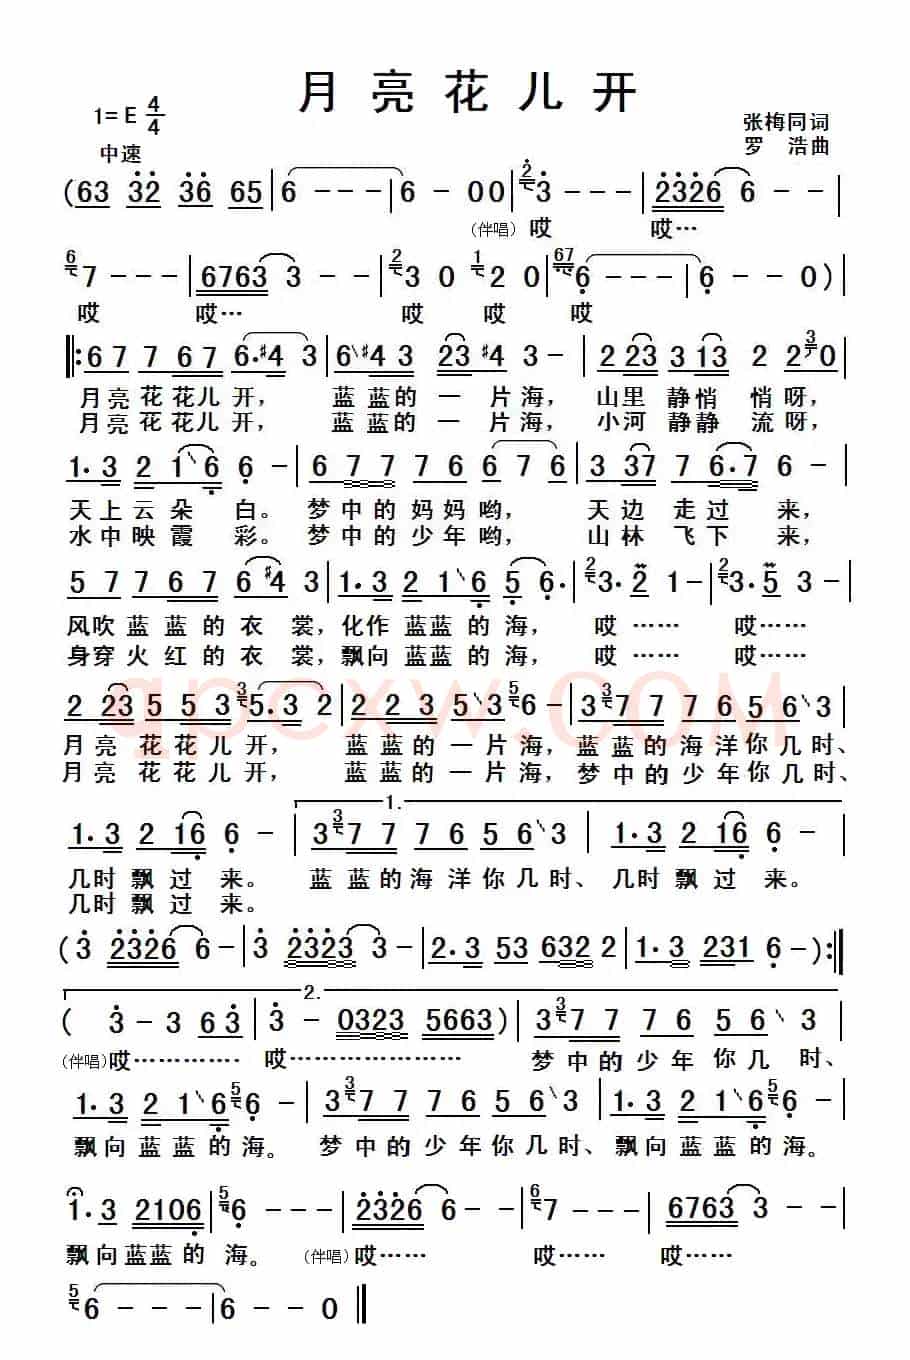 月亮花儿开
1= E 4/4
中速
张梅同词
罗 浩曲
(63 32 36 65 | 6 - - - | 6 - 0 0 | 2 3 - - - | 2326 6 - - |
(伴唱) 哎 哎…
6 7 - - - | 6763 3 - - | 2 3 0 1 2 0 | 67 6 - - - | 6 - - 0) |
哎 哎… 哎 哎 哎
|: 6 7 7 67 6·#4 3 | 6 #4 3 23 #4 3 - | 2 23 3 13 2 2 3 0 |
月亮花花儿开， 蓝蓝的一片海， 山里静悄悄呀，
月亮花花儿开， 蓝蓝的一片海， 小河静静流呀，
1·3 2 1 6 6 - | 6 7 7 7 6 6 7 6 | 3 37 7 6·7 6 - |
天上云朵白。 梦中的妈妈哟， 天边走过来，
水中映霞彩。 梦中的少年哟， 山林飞下来，
5 7 7 6 7 6 #4 3 | 1·3 2 1 6 5 6· | 2 3· 2 1 - | 2 3· 5 3 - |
风吹蓝蓝的衣裳，化作蓝蓝的海， 哎…… 哎……
身穿火红的衣裳，飘向蓝蓝的海， 哎…… 哎……
2 23 5 5 3 3 5·3 2 | 2 2 3 5 3 5 6 - | 3 3 7 7 7 6 5 6 3 |
月亮花花儿开， 蓝蓝的一片海，蓝蓝的海洋你几时、
月亮花花儿开， 蓝蓝的一片海，梦中的少年你几时、
1.
1·3 2 16 6 - | 3 3 7 7 7 6 5 6 3 | 1·3 2 16 6 - |
几时飘过来。 蓝蓝的海洋你几时、几时飘过来。
几时飘过来。
(3 2326 6 - | 3 2323 3 - | 2·3 53 632 2 | 1·3 231 6 -) :|
2.
( 3 - 3 6 3 | 3 - 0323 5663) | 3 3 7 7 7 6 5 6 3 |
(伴唱)哎…………… 哎……………… 梦中的少年你几时、
1·3 2 1 6 5 6 - | 3 3 7 7 7 6 5 6 3 | 1·3 2 1 6 5 6 - |
飘向蓝蓝的海。 梦中的少年你几时、飘向蓝蓝的海。
1·3 2106 | 5 6 - - - | 2326 6 - - | 6 7 - - - | 6763 3 - - |
飘向蓝蓝的海。 (伴唱)哎…… 哎…… 哎……
5 6 - - - | 6 - - 0 ||
qpcxw.COM